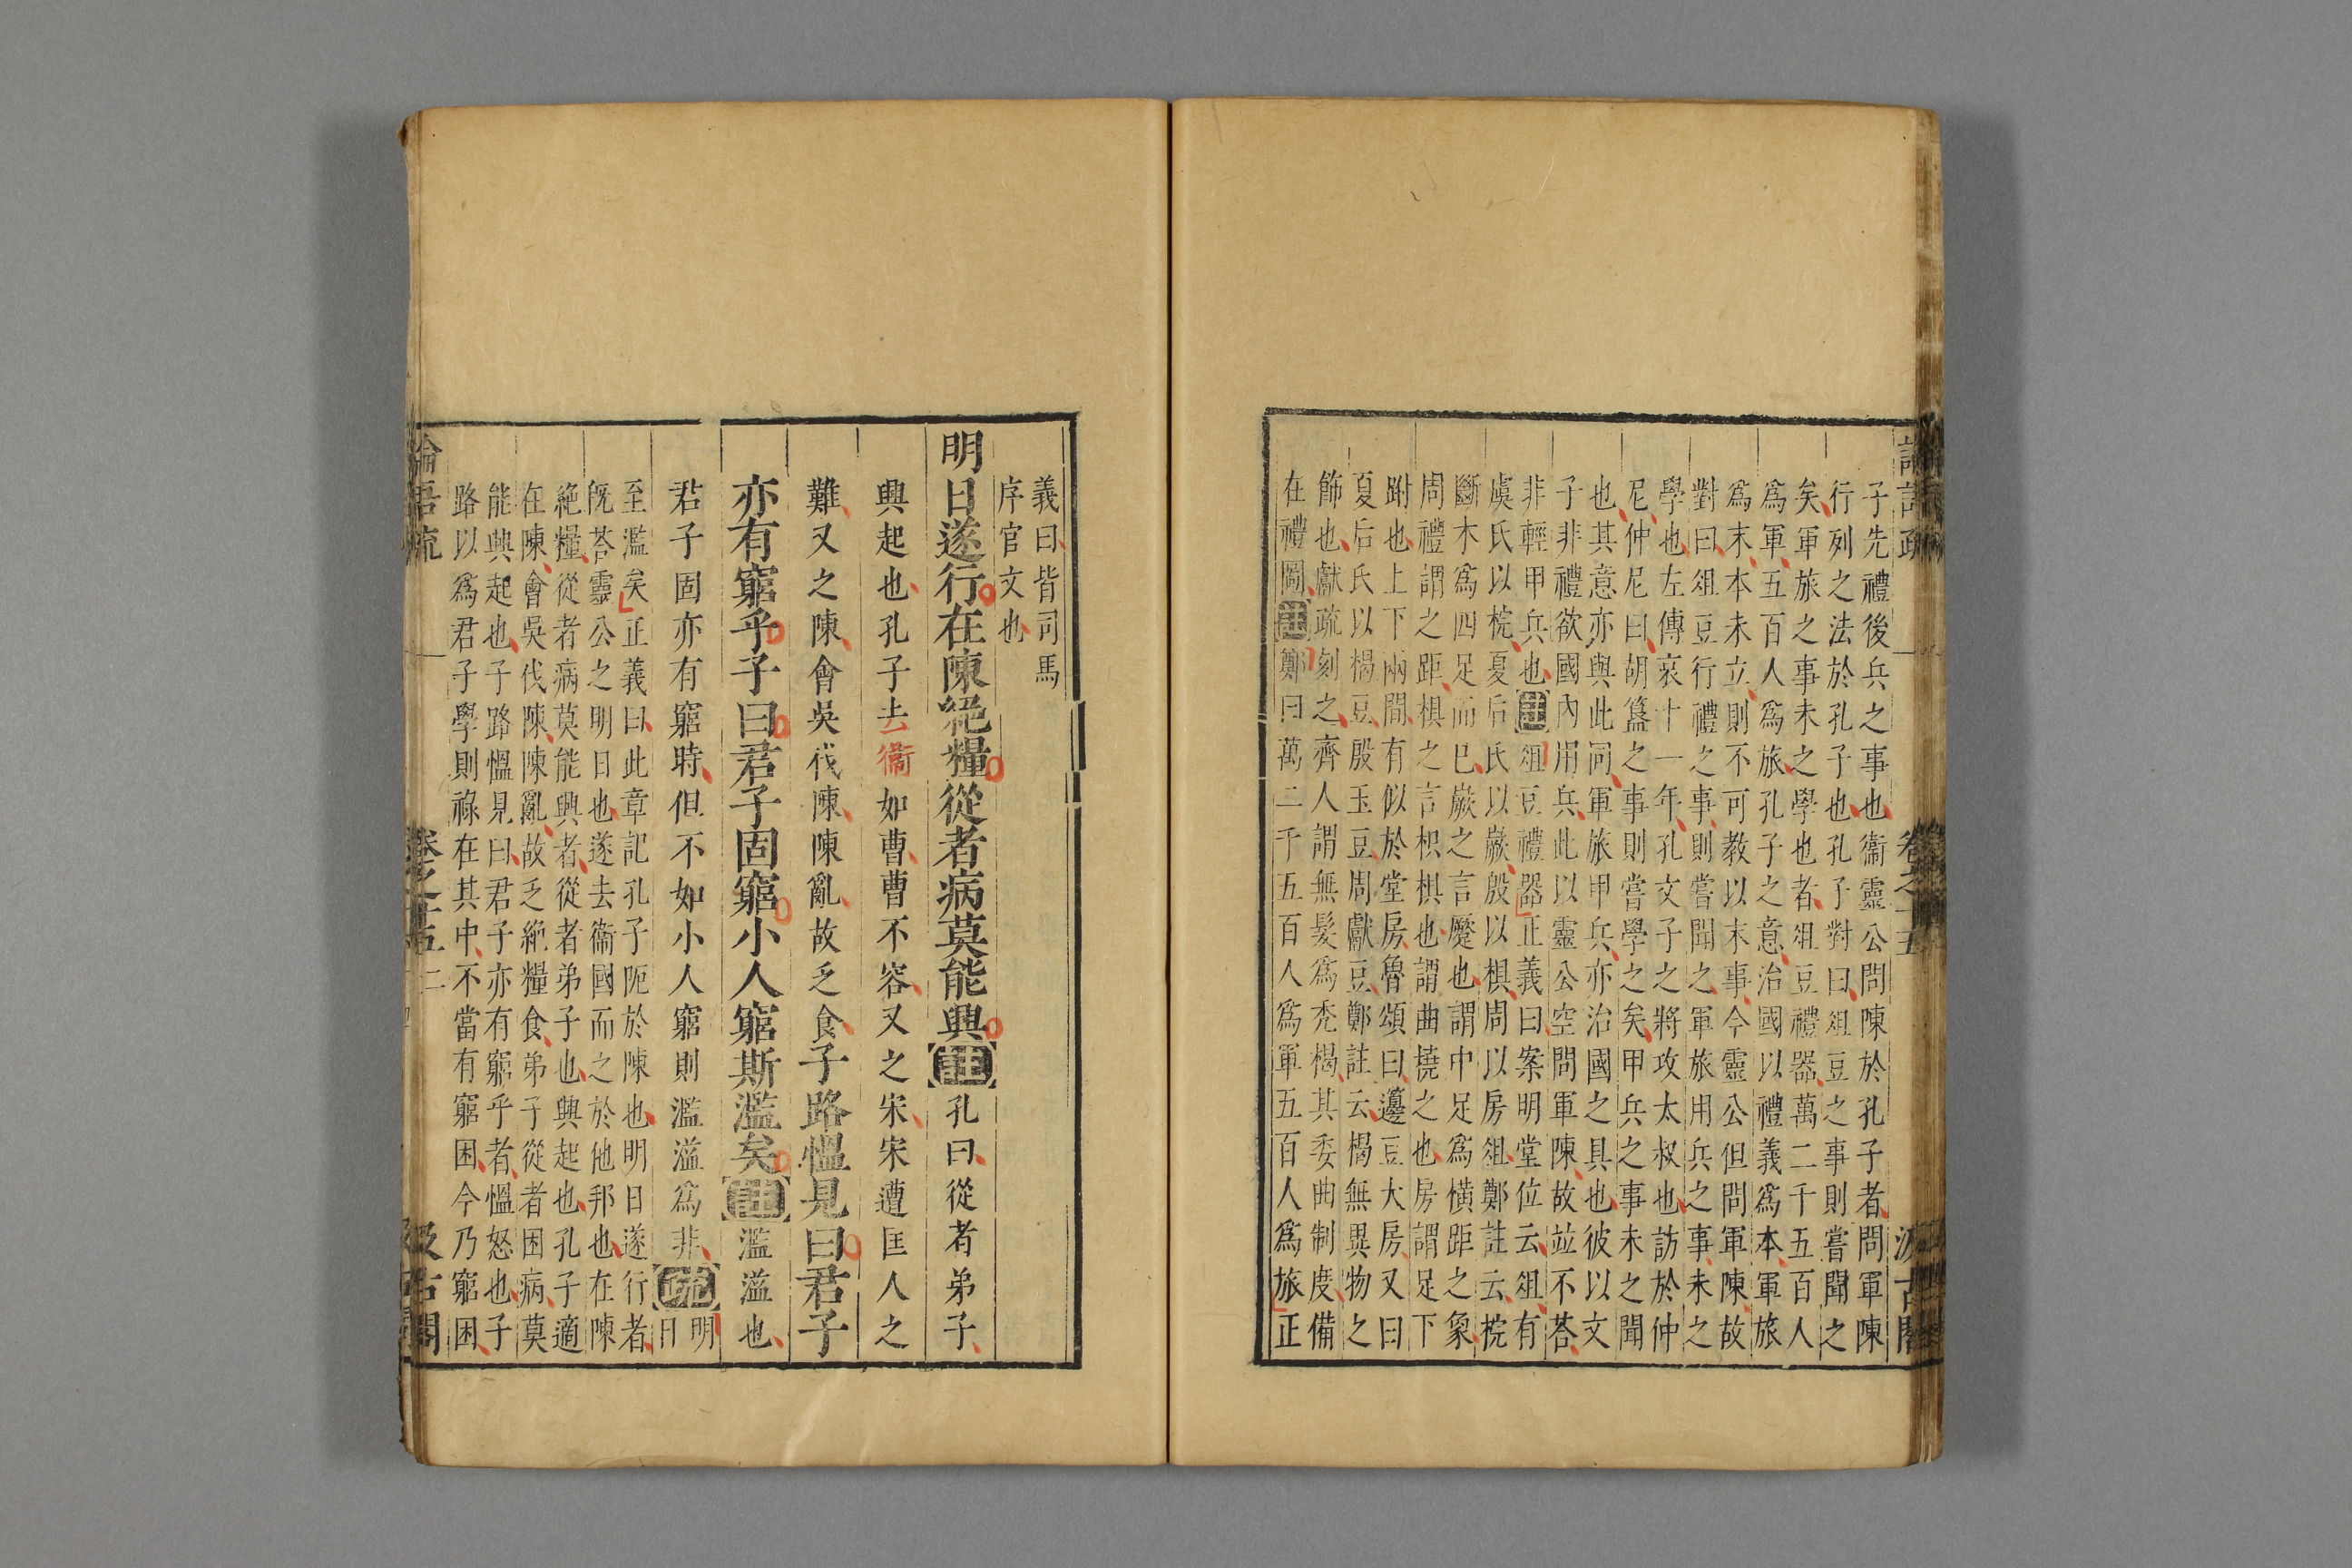 子先禮後兵之事也衞靈公問陳於孔子者問軍陳
行列之法於孔子也孔子對曰俎豆之事則嘗聞之
矣軍旅之事未之學也者俎豆禮器萬二千五百人
爲軍五百人爲旅孔子之意治國以禮義爲本軍旅
爲末本未立則不可教以末事今靈公但問軍陳故
對曰俎豆行禮之事則嘗聞之軍旅用兵之事未之
學也左傳哀十一年孔文子之將攻太叔也訪於仲
尼仲尼曰胡簋之事則嘗學之矣甲兵之事未之聞
也其意亦與此同軍旅甲兵亦治國之具也彼以文
子非禮欲國內用兵此以靈公空問軍陳故竝不荅
非輕甲兵也註俎豆禮器正義曰案明堂位云俎有
虞氏以梡夏后氏以嶡殷以椇周以房俎鄭註云梡
斷木爲四足而已嶡之言蹷也謂中足爲橫距之象
周禮謂之距椇之言枳椇也謂曲橈之也房謂足下
跗也上下兩間有似於堂房魯頌曰籩豆大房又曰
夏后氏以楬豆殷玉豆周獻豆鄭註云楬無異物之
飾也獻疏刻之齊人謂無髮爲禿楬其委曲制度備
在禮圖註鄭曰萬二千五百人爲軍五百人爲旅正
義曰皆司馬
序官文也
明日遂行在陳絕糧從者病莫能興註孔曰從者弟子
興起也孔子去衞如曹曹不容又之宋宋遭匡人之
難又之陳會吳伐陳陳亂故乏食子路慍見曰君子
亦有窮乎子曰君子固窮小人窮斯濫矣註濫溢也
君子固亦有窮時但不如小人窮則濫溢爲非疏明日
至濫矣正義曰此章記孔子阨於陳也明日遂行者
旣荅靈公之明日也遂去衞國而之於他邦也在陳
絕糧從者病莫能興者從者弟子也興起也孔子適
在陳會吳伐陳陳亂故乏絕糧食弟子從者困病莫
能興起也子路慍見曰君子亦有窮乎者慍怒也子
路以爲君子學則祿在其中不當有窮困今乃窮困
論語疏 卷之十五 二 汲古閣